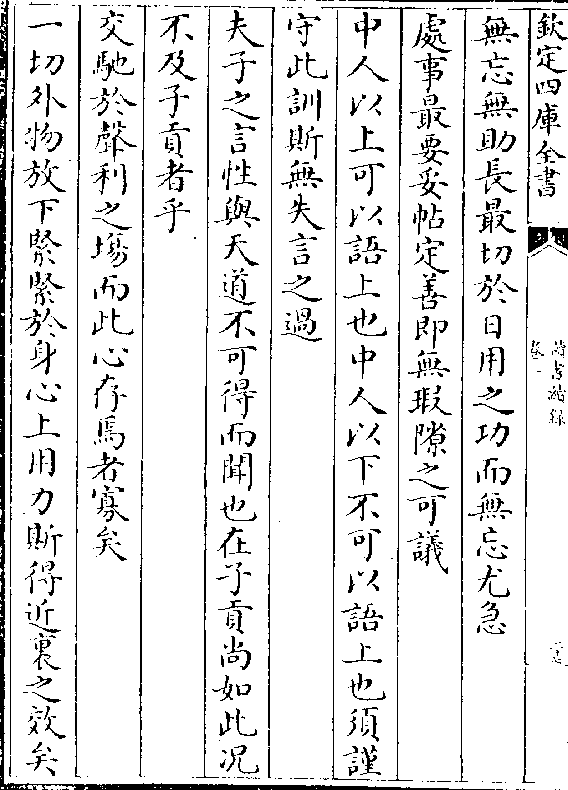 欽定四庫全書
讀書續錄
卷一
無忘無助長最切於日用之功而無忘尤急
處事最要妥帖定善即無瑕隙之可議
中人以上可以語上也中人以下不可以語上也須謹
守此訓斯無失言之過
夫子之言性與天道不可得而聞也在子貢尚如此况
不及子貢者乎
交馳於聲利之塲而此心存焉者寡矣
一切外物放下緊緊於身心上用力斯得近裏之效矣